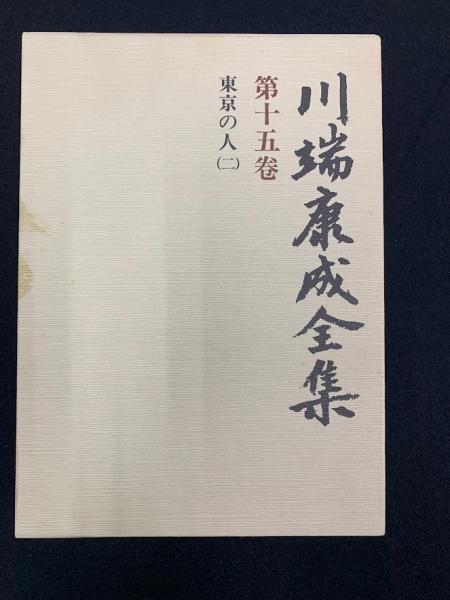 川端康成全集
第十五卷
東京の人(二)